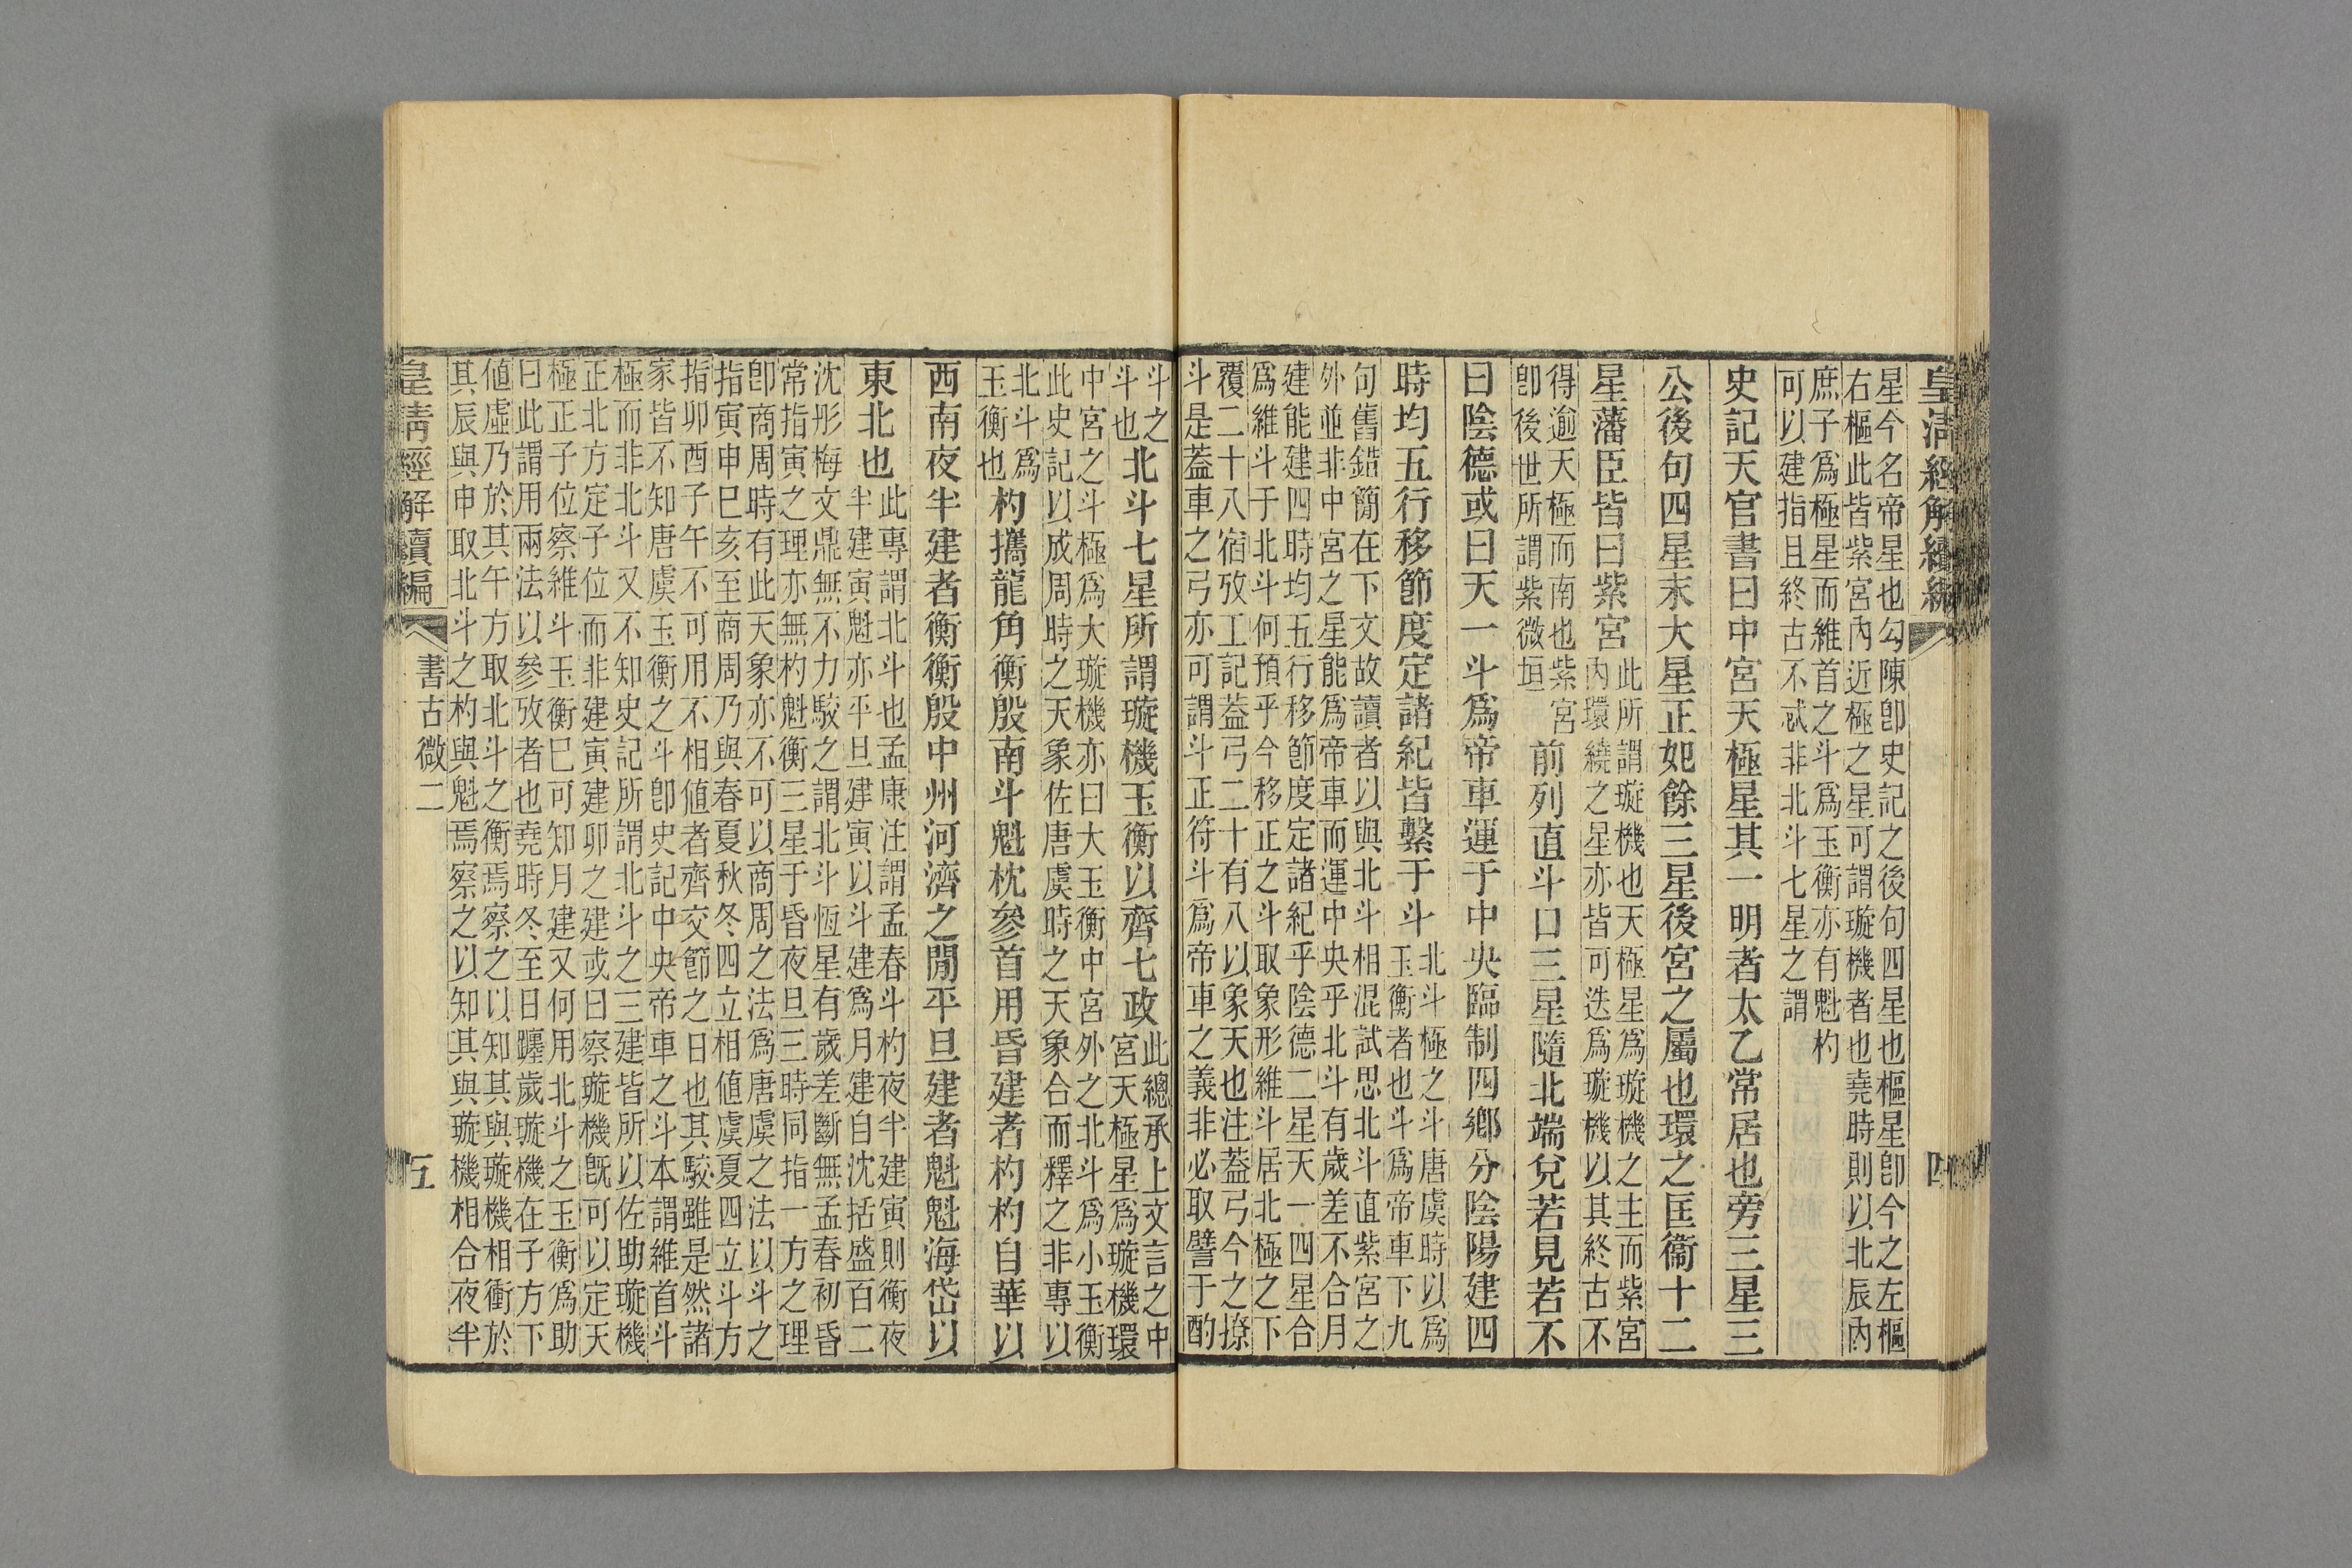 皇清經解續編
四
星今名帝星也勾陳卽史記之後句四星也樞星卽今之左樞
右樞此皆紫宮內近極之星可謂璇機者也堯時則以北辰內
庶子爲極星而維首之斗爲玉衡亦有魁杓
可以建指且終古不忒非北斗七星之謂
史記天官書曰中宮天極星其一明者太乙常居也旁三星三
公後句四星末大星正妃餘三星後宮之屬也環之匡衞十二
星藩臣皆曰紫宮
此所謂璇機也天極星爲璇機之主而紫宮
內環繞之星亦皆可迭爲璇機以其終古不
得逾天極而南也紫宮
卽後世所謂紫微垣
前列直斗口三星隨北端兌若見若不
曰陰德或曰天一斗爲帝車運于中央臨制四鄉分陰陽建四
時均五行移節度定諸紀皆繫于斗
北斗極之斗唐虞時以爲
玉衡者也斗爲帝車下九
句舊錯簡在下文故讀者以與北斗相混試思北斗直紫宮之
外並非中宮之星能爲帝車而運中央乎北斗有歲差不合月
建能建四時均五行移節度定諸紀乎陰德二星天一四星合
爲維斗于北斗何預乎今移正之斗取象形維斗居北極之下
覆二十八宿攷工記蓋弓二十有八以象天也注蓋弓今之撩
斗是蓋車之弓亦可謂斗正符斗爲帝車之義非必取譬于酌
斗之
斗也
北斗七星所謂璇機玉衡以齊七政
此總承上文言之中
宮天極星爲璇機環
中宮之斗極爲大璇機亦曰大玉衡中宮外之北斗爲小玉衡
此史記以成周時之天象佐唐虞時之天象合而釋之非專以
北斗爲
玉衡也
杓攜龍角衡殷南斗魁枕參首用昏建者杓杓自華以
西南夜半建者衡衡殷中州河濟之閒平旦建者魁魁海岱以
東北也
此專謂北斗也孟康注謂孟春斗杓夜半建寅則衡夜
半建寅魁亦平旦建寅以斗建爲月建自沈括盛百二
沈彤梅文鼎無不力駮之謂北斗恆星有歲差斷無孟春初昏
常指寅之理亦無杓魁衡三星于昏夜旦三時同指一方之理
卽商周時有此天象亦不可以商周之法爲唐虞之法以斗之
指寅申巳亥至商周乃與春夏秋冬四立相值虞夏四立斗方
指卯酉子午不可用不相值者齊交節之日也其駮雖是然諸
家皆不知唐虞玉衡之斗卽史記中央帝車之斗本謂維首斗
極而非北斗又不知史記所謂北斗之三建皆所以佐助璇機
正北方定子位而非建寅建卯之建或曰察璇機旣可以定天
極正子位察維斗玉衡巳可知月建又何用北斗之玉衡爲助
曰此謂用兩法以參攷者也堯時冬至日躔歲璇機在子方下
値虛乃於其午方取北斗之衡焉察之以知其與璇機相衝於
其辰與申取北斗之杓與魁焉察之以知其與璇機相合夜半
皇清經解續編
書古微二
五